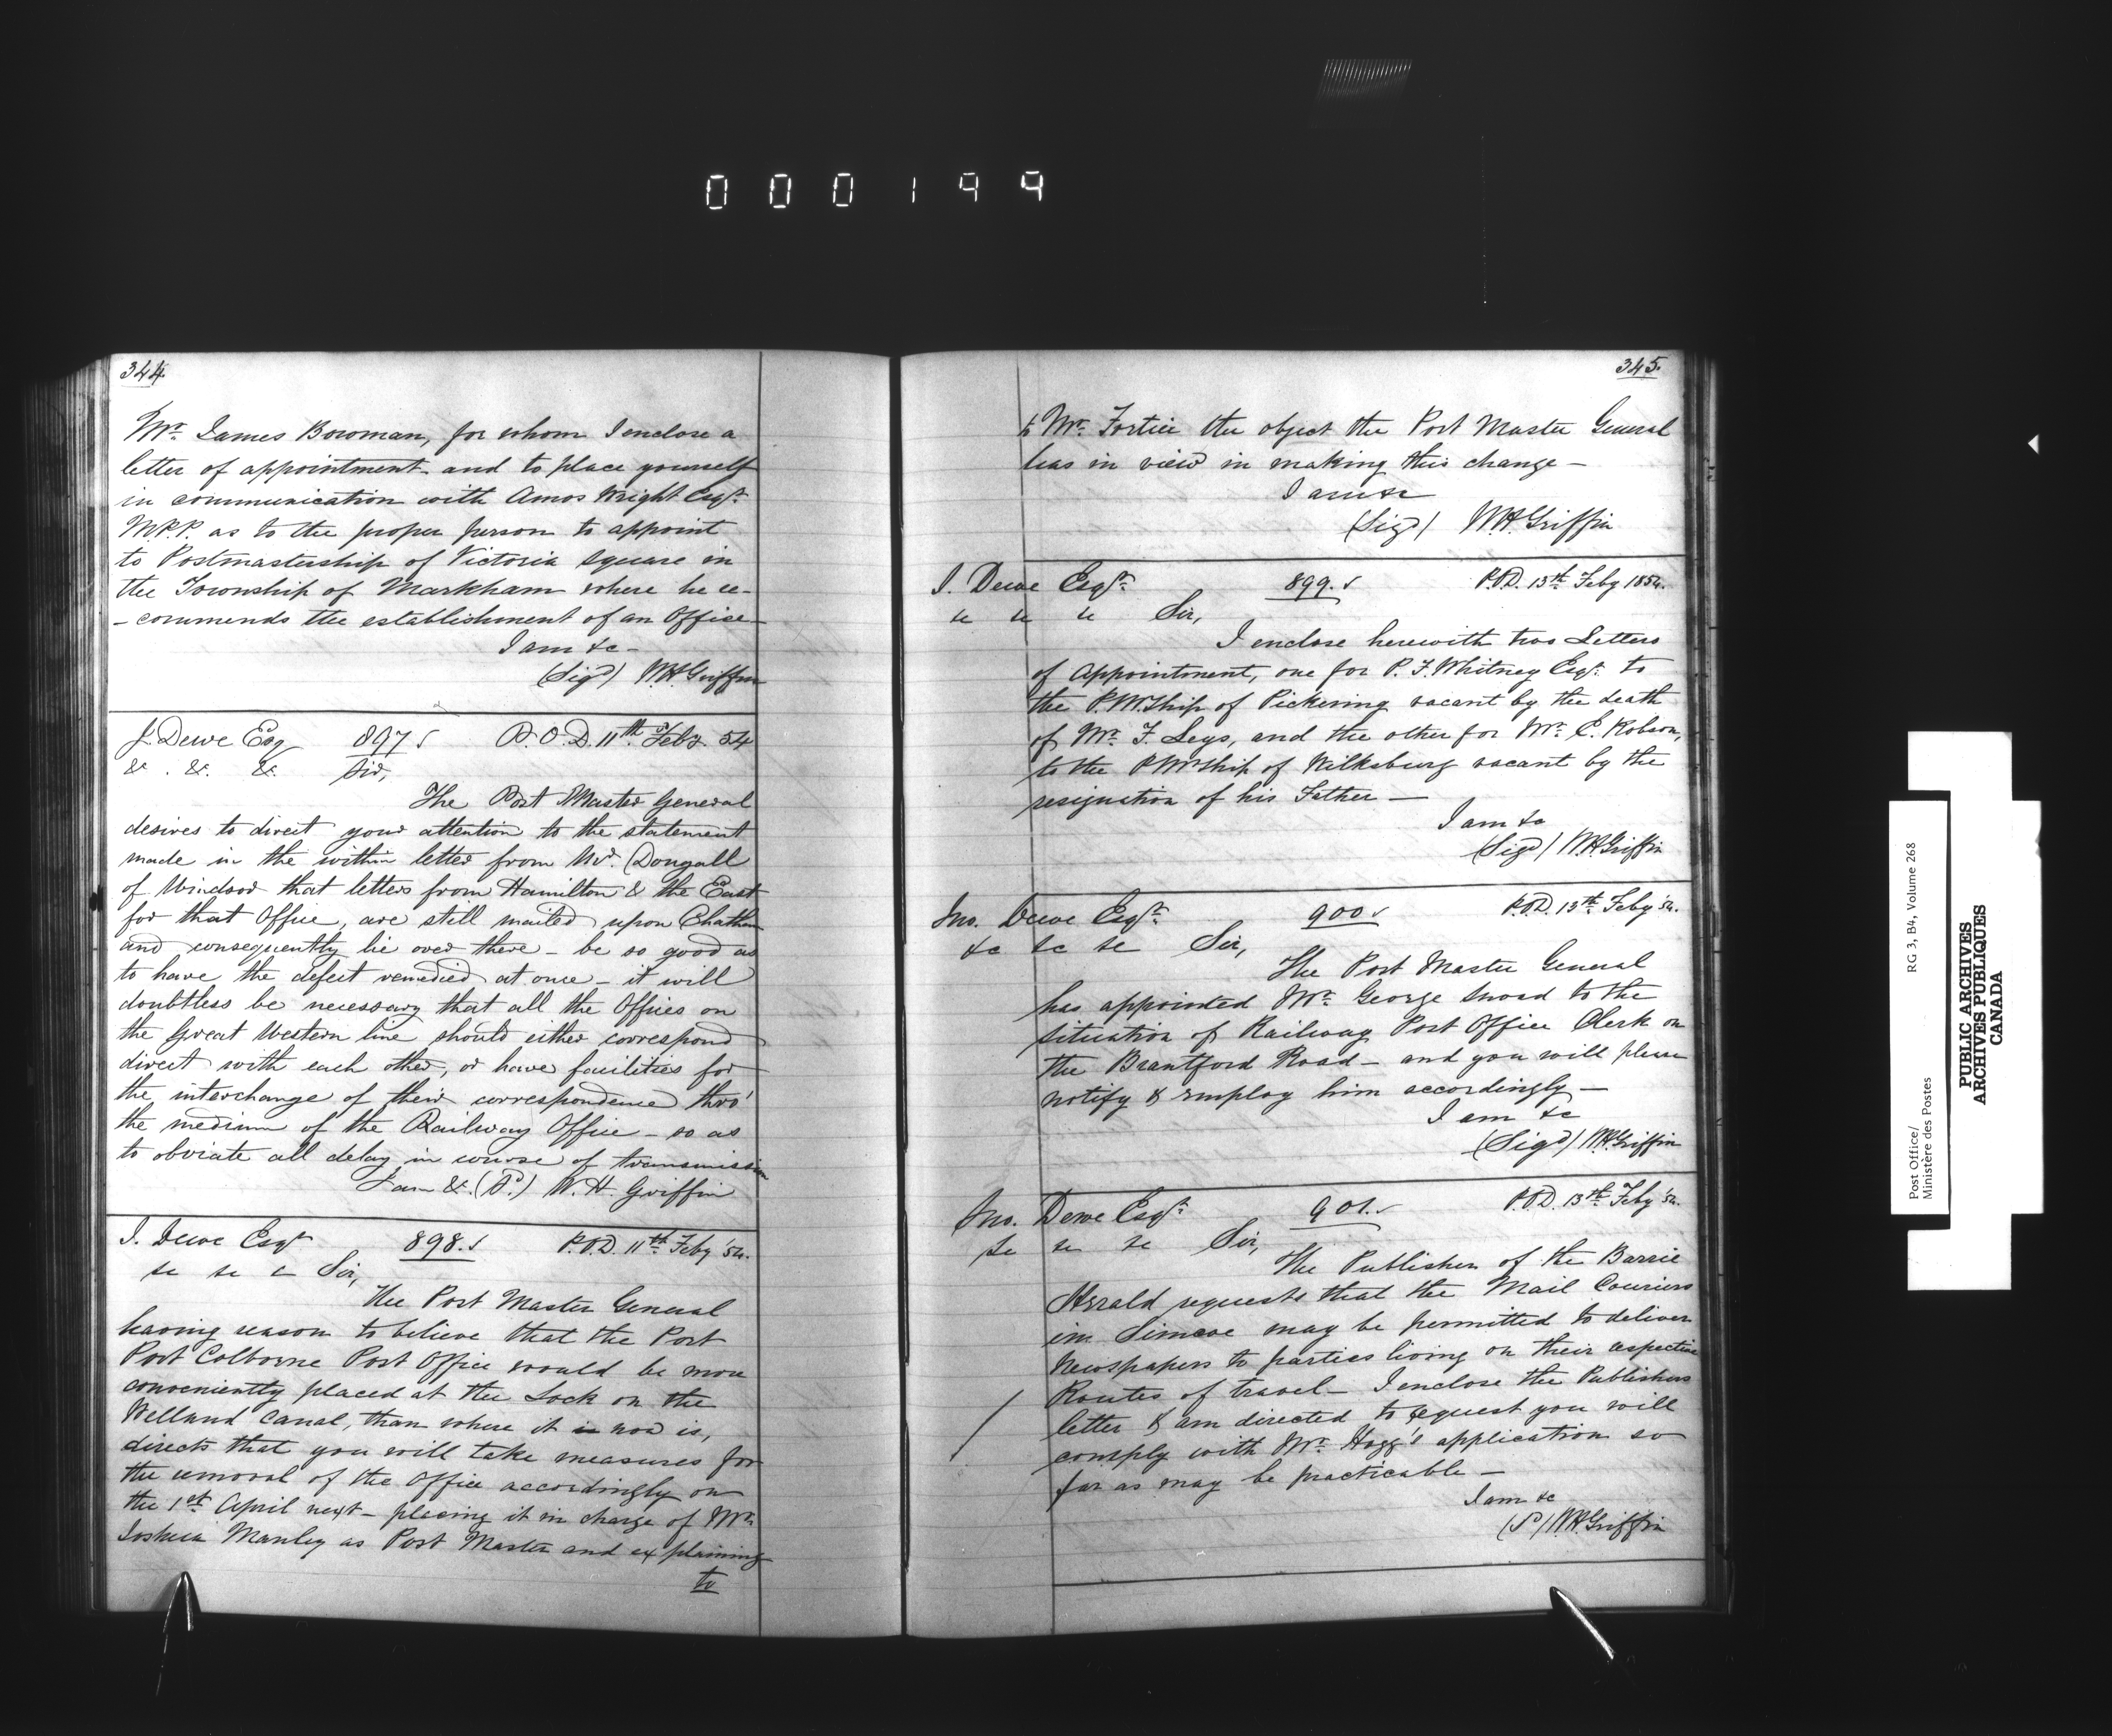 000199
344.
Mr. James Bowman, for whom I enclose a
letter of appointment and to place yourself
in communication with Amos Wright Esqr.
M.P.P. as to the proper person to appoint
to Postmastership of Victoria Square in
the Township of Markham where he re-
-commends the establishment of an Office
I am &c -
(Sigd) W.H. Griffin
J. Dewe Esq 897 P.O.D. 11th Feby 54
&. &. &. Sir,
The Post Master General
desires to direct your attention to the statement
made in the within letter from Mr. Dougall
of Windsor that letters from Hamilton & the East
for that Office, are still mailed upon Chatham
and consequently lie over there - be so good as
to have the defect remedied at once - it will
doubtless be necessary that all the Offices on
the Great Western line should either correspond
direct with each other, or have facilities for
the interchange of their correspondence thro'
the medium of the Railway Office - so as
to obviate all delay in course of transmission
I am &. (Sd.) W. H. Griffin
J. Dewe Esqr 898. P.O.D. 11th Feby '54.
&c &c & Sir,
The Post Master General
having reason to believe that the Port
Port Colborne Post Office would be more
conveniently placed at the Lock on the
Welland Canal, than where it is now is,
directs that you will take measures for
the removal of the Office accordingly on
the 1st April next - placing it in charge of Mr.
Joshua Manley as Post Master and explaining
to
345.
to Mr. Fortier the object the Post Master General
has in view in making this change -
I am &c
(Sigd) W.H. Griffin
J. Dewe Esqr. 899. P.O.D. 13th Feby 1854.
&c &c &c Sir,
I enclose herewith two Letters
of Appointment, one for P. F. Whitney Esqr. to
the P.M.Ship of Pickering vacant by the death
of Mr. F. Leys, and the other for Mr. E. Robson,
to the P.M.Ship of Wilksburg vacant by the
resignation of his Father -
I am &c
(Sigd) W.H. Griffin
Jno. Dewe Esqr. 900 P.O.D. 13th Feby '54.
&c &c &c Sir,
The Post Master General
has appointed Mr. George to the
situation of Railway Post Office Clerk on
the Brantford Road - and you will please
notify & employ him accordingly -
I am &c
(Sigd) W.H. Griffin
Jno. Dewe Esqr. 901. P.O.D. 13th Feby '54.
&c &c &c Sir,
The Publisher of the Barrie
Herald requests that the Mail Couriers
in Simcoe may be permitted to deliver
Newspapers to parties living on their respective
Routes of travel - I enclose the Publishers
letter & am directed to request you will
comply with Mr. Hogg's application so
far as may be practicable -
I am &c
(S) W.H. Griffin
Post Office/
Ministère des Postes
RG 3, B4, Volume 268
PUBLIC ARCHIVES
ARCHIVES PUBLIQUES
CANADA